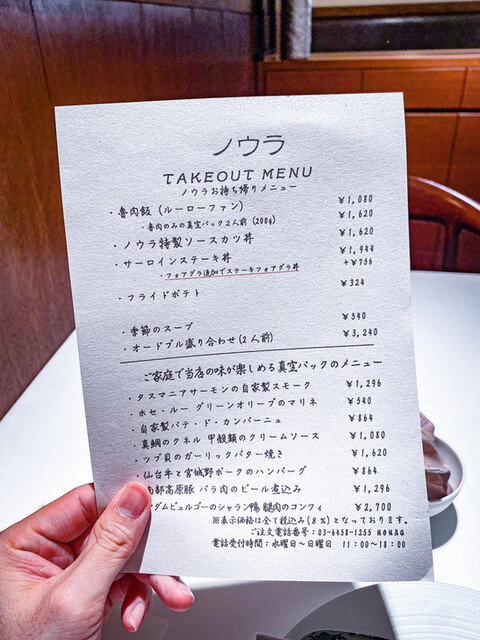 ノウラ
TAKEOUT MENU
ノウラお持ち帰りメニュー
・魯肉飯（ルーローファン） ￥1,080
・魯肉のみの真空パック2人前(200g) ￥1,620
・ノウラ特製ソースカツ丼 ￥1,620
・サーロインステーキ丼 ￥1,944
・フォアグラ追加でステーキフォアグラ丼 +￥756
・フライドポテト ￥324
・季節のスープ ￥540
・オードブル盛り合わせ(2人前) ￥3,240
ご家庭で当店の味が楽しめる真空パックのメニュー
・タスマニアサーモンの自家製スモーク ￥1,296
・ホセ・ルー グリーンオリーブのマリネ ￥540
・自家製パテ・ド・カンパーニュ ￥864
・真鯛のクネル 甲殻類のクリームソース ￥1,080
・ツブ貝のガーリックバター焼き ￥1,620
・仙台牛と宮城野ポークのハンバーグ ￥864
南部高原豚 バラ肉のビール煮込み ￥1,296
ダムビュルゴーのシャラン鴨 腿肉のコンフィ ￥2,700
※表示価格は全て税込み(8％)となっております。
ご注文電話番号：03-6458-1255 noura
電話受付時間：水曜日〜日曜日 11：00〜18：00